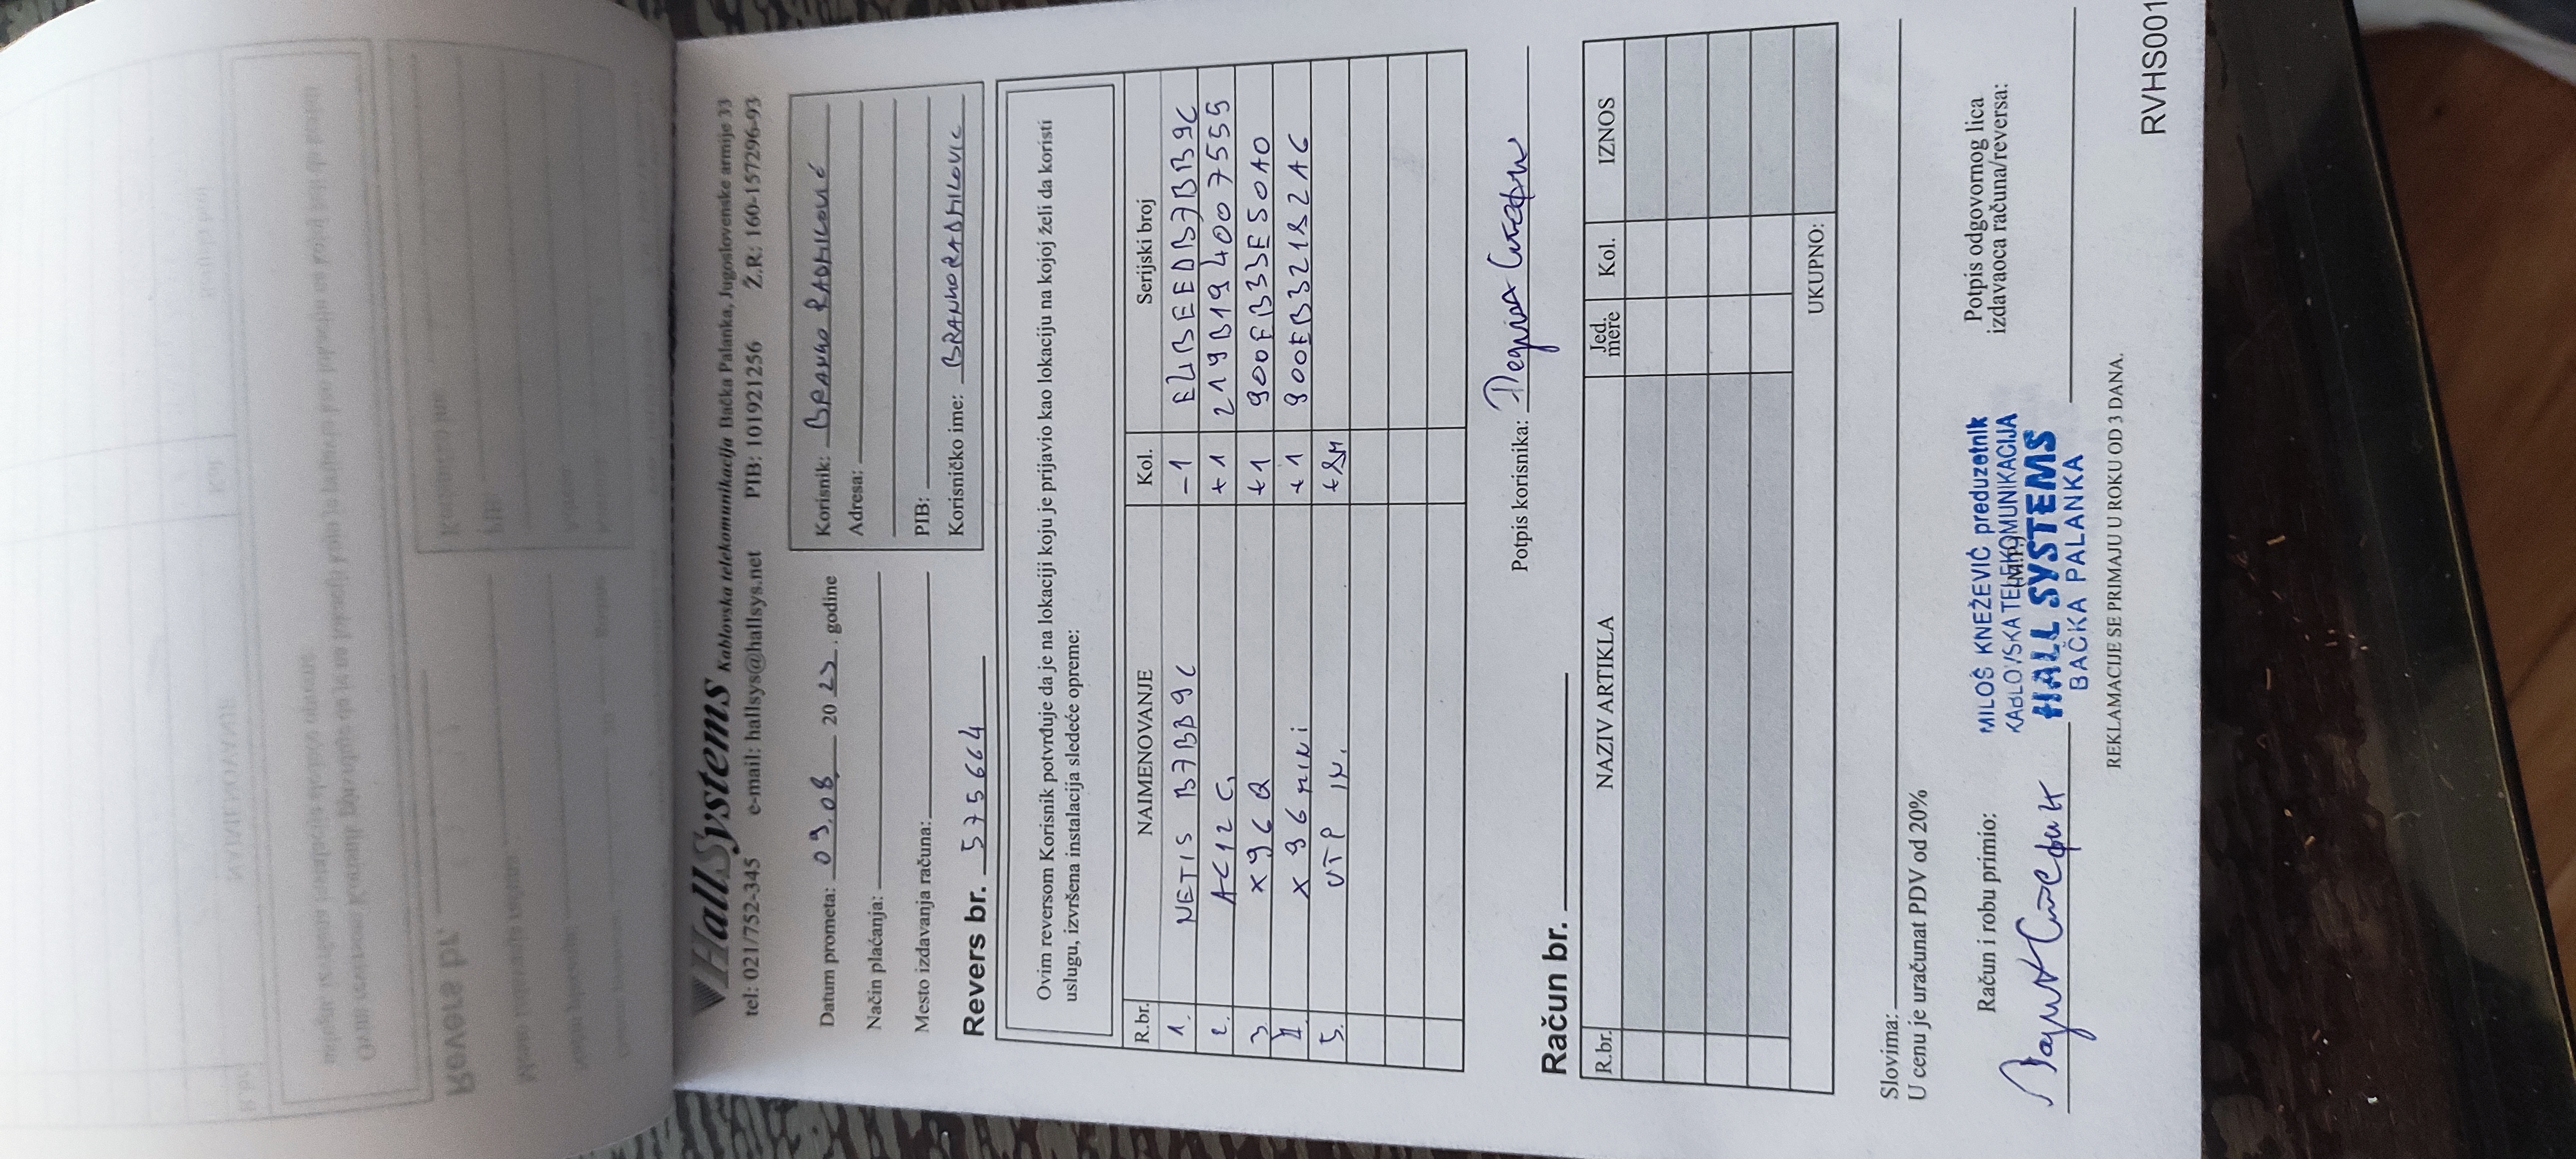 HallSystems Kablovska telekomunikacija Bačka Palanka, Jugoslovenske armije 33
tel: 021/7752-345 e-mail: hallsys@hallsys.net PIB: 101921256 Ž.R: 160-157296-93
Datum prometa: 09.08. 2023. godine
Način plaćanja:
Mesto izdavanja računa:
Korisnik: BRANKO RADMILOVIĆ
Adresa:
PIB:
Korisničko ime: BRANKORADMILOVIC
Revers br. 575664
Ovim reversom Korisnik potvrđuje da je na lokaciji koju je prijavio kao lokaciju na kojoj želi da koristi
uslugu, izvršena instalacija sledeće opreme:
R.br. NAIMENOVANJE Kol. Serijski broj
1. NETIS B7BB9C -1 E21BEEDB7BB9C
2. AC12 C. +1 219B194007555
3 X96Q +1 900EB333E50A0
4. X96 MINI +1 900EB321B2A6
5. UTP IN.
Potpis korisnika:
Račun br.
R.br. NAZIV ARTIKLA Jed. mere Kol. IZNOS
UKUPNO:
Slovima:
U cenu je uračunat PDV od 20%
Račun i robu primio:
(M.P.)
MILOŠ KNEŽEVIĆ preduzetnik
KABLOVSKA TELEKOMUNIKACIJA
HALL SYSTEMS
BAČKA PALANKA
Potpis odgovornog lica
izdavaoca računa/reversa:
REKLAMACIJE SE PRIMAJU U ROKU OD 3 DANA.
RVHS001